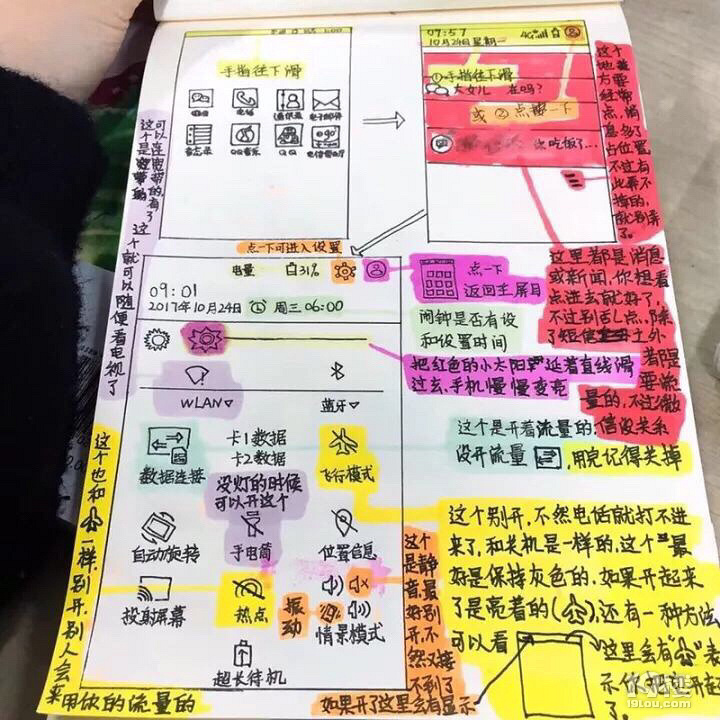 手指往下滑
微信
电话
通讯录
电子邮件
备忘录
QQ音乐
QQ
电信营业厅
09:57
4G
10月24日星期一
①手指往下滑
大女儿 在吗?
或②点一下
吃饭了...
这个地方要经常点,消息多了占位置,不过有此弄不掉的,就别弄了。
可以连宽带的有了
这个是宽带
这个就可以随便看电视了
点一下可进入设置
电量 31%
点一下
返回主屏目
09:01
2017年10月24日 周三06:00
闹钟是否有设
和设置时间
这里都是消息
或新闻,你想看
点进去就好了,
不过别乱点,除
了短信 以外
都是
要流
量的,不过微
信没关系
把红色的小太阳 延着直线滑
过去,手机慢慢变亮
WLAN
蓝牙
数据连接
卡1数据
卡2数据
飞行模式
这个是开着流量的,
没开流量 ,用完记得关掉
没灯的时候
可以开这个
自动旋转
手电筒
位置信息
投射屏幕
热点
振动
情景模式
超长待机
这个别开,不然电话就打不进
来了,和关机是一样的,这个 最
好是保持灰色的,如果开起来
了是亮着的( ),还有一种方法
可以看
这里会有“ ”表
示你把它开起
这个是静音,最好别开,不然又接不到了
如果开了这里会有显示
这个也和 一样,别开,别人会来
用你的流量的
19lou.com